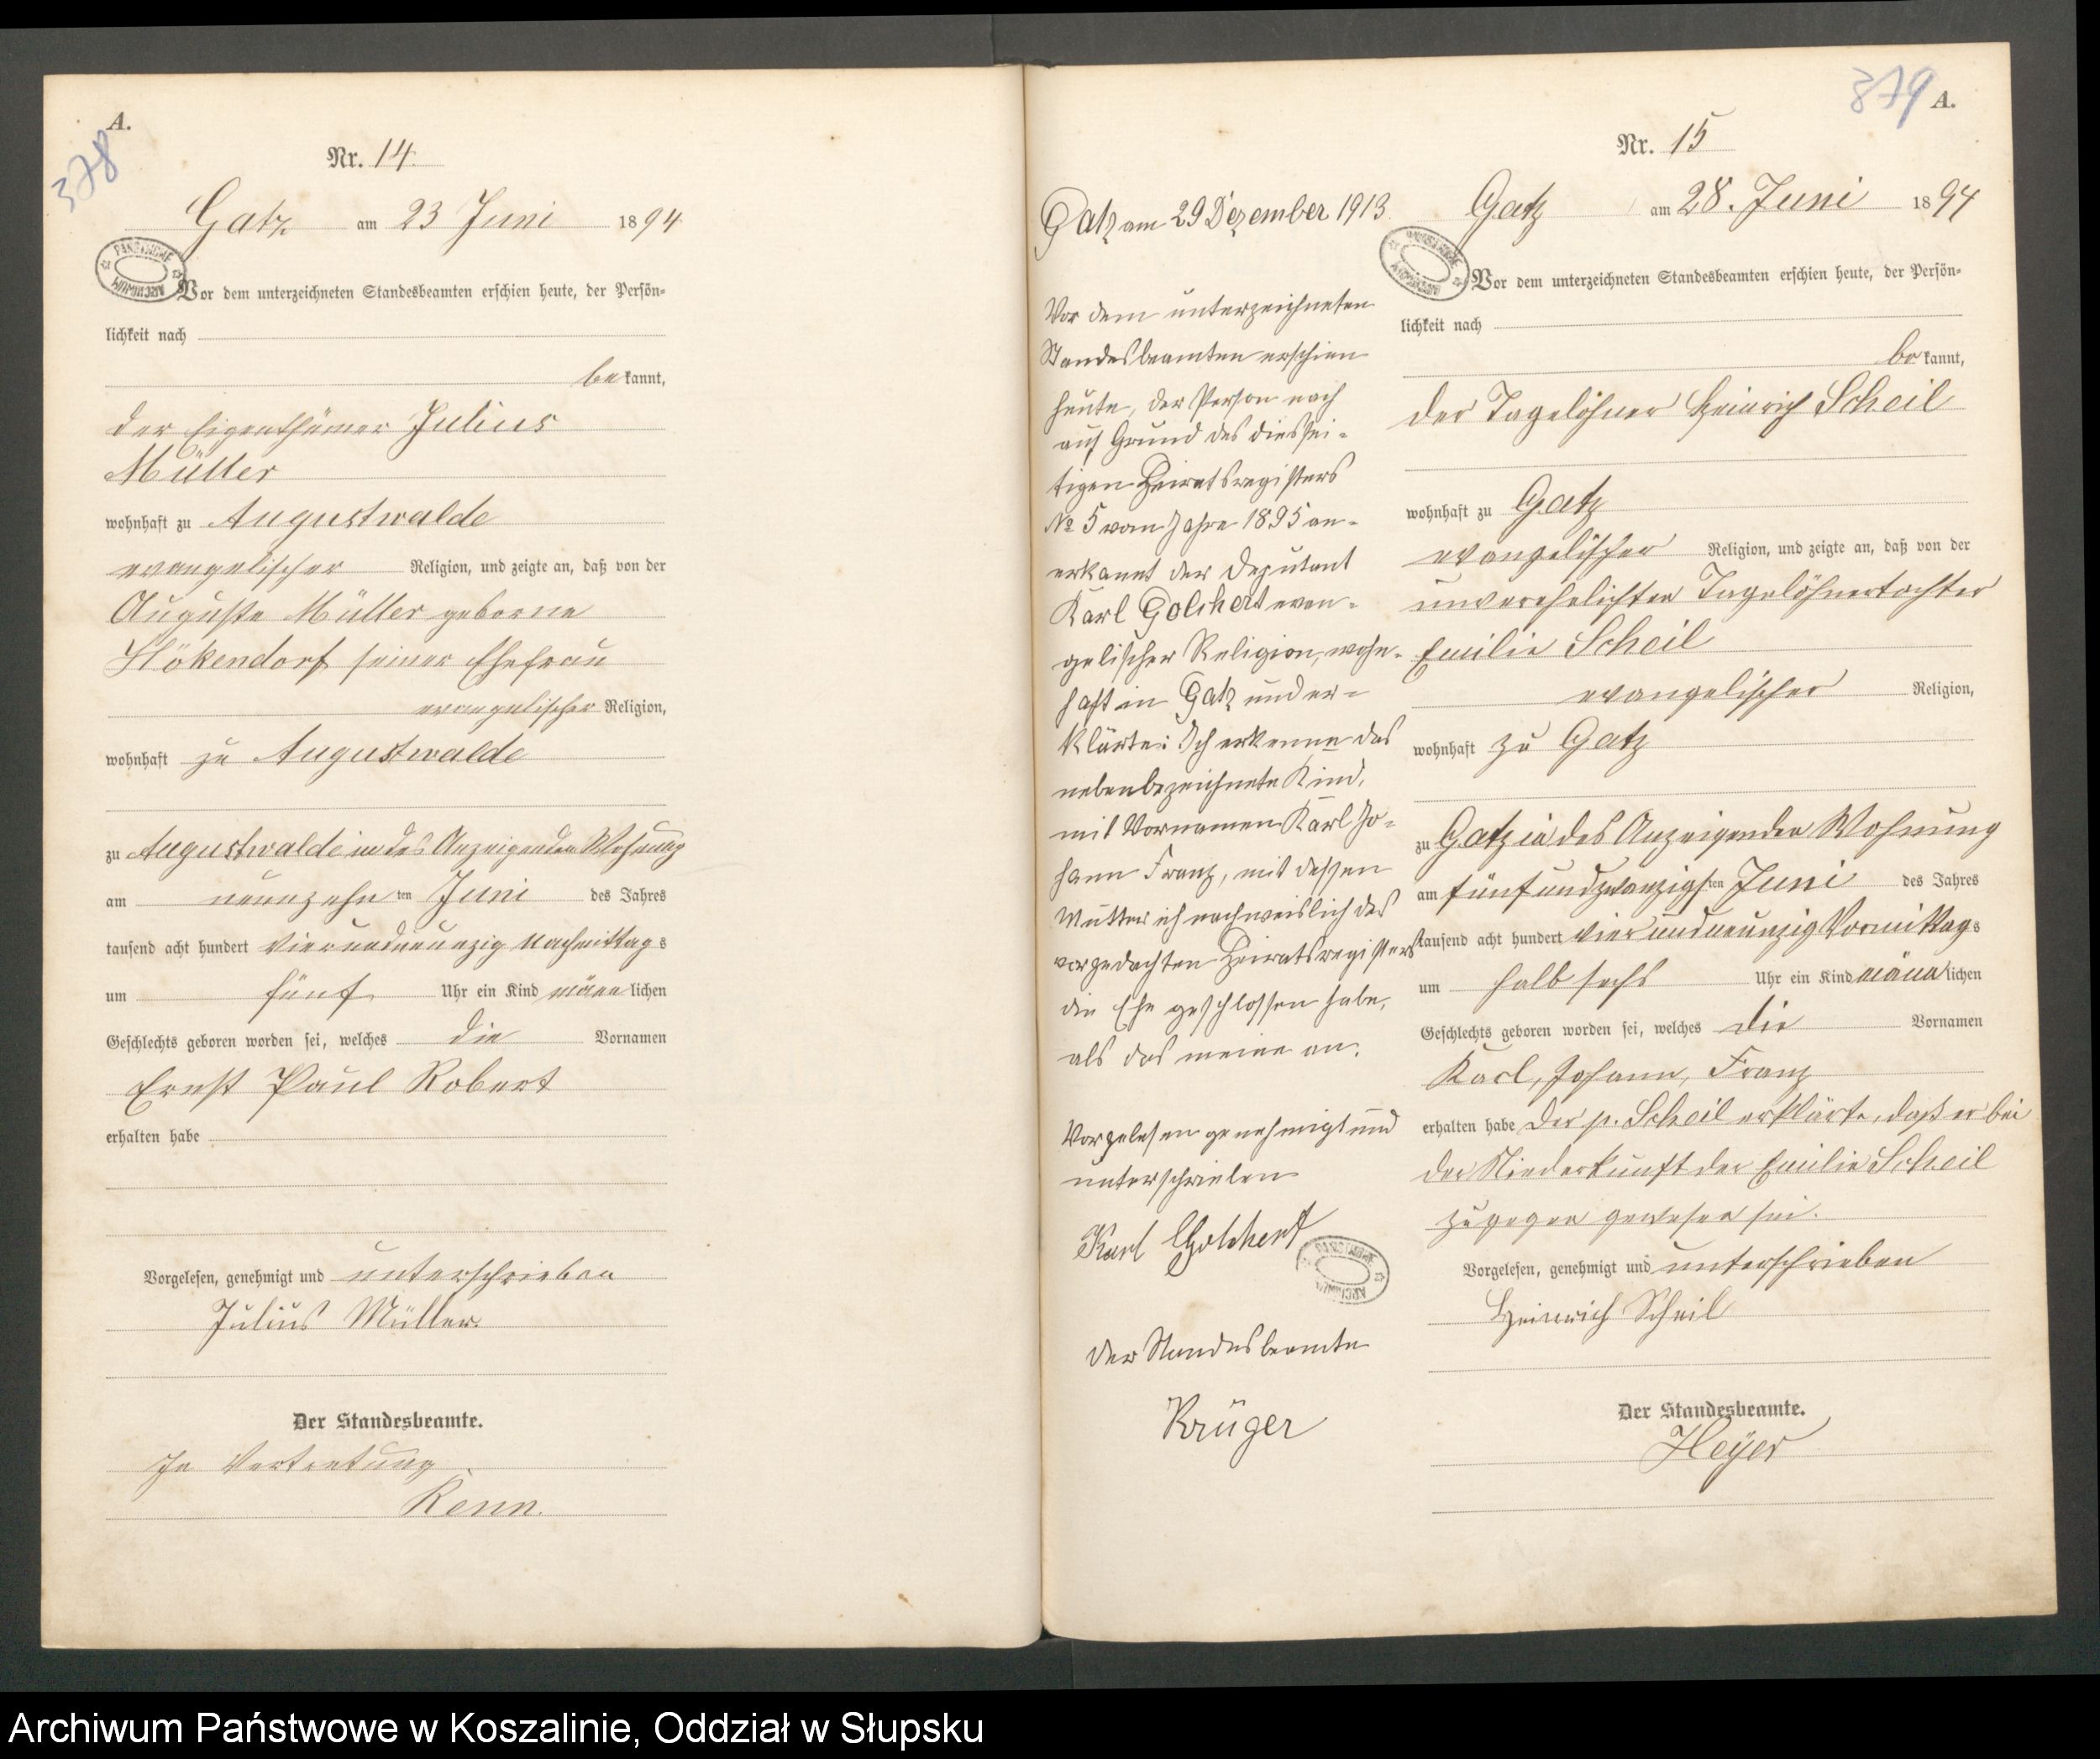 A.
378
Nr. 14.
Gatz am 23 Juni 1894
PAŃSTWOWE ARCHIWUM
Vor dem unterzeichneten Standesbeamten erschien heute, der Persön=
lichkeit nach
bekannt,
der Eigenthümer Julius
Müller
wohnhaft zu Augustwalde
evangelischer Religion, und zeigte an, daß von der
Auguste Müller geborne
Stökendorf seiner Ehefrau
evangelischer Religion,
wohnhaft zu Augustwalde
zu Augustwalde in des Anzeigenden Wohnung
am neunzehnten Juni des Jahres
tausend acht hundert vierundneunzig Nachmittags
um fünf Uhr ein Kind männlichen
Geschlechts geboren worden sei, welches die Vornamen
Ernst Paul Robert
erhalten habe
Vorgelesen, genehmigt und unterschrieben
Julius Müller.
Der Standesbeamte.
In Vertretung
Renn.
Gatz am 29 Dezember 1913.
Vor dem unterzeichneten
Standesbeamten erschien
heute, der Person nach
auf Grund des diessei=
tigen Heiratsregisters
No 5 vom Jahre 1895 an=
erkannt der Deputant
Karl Golchert evan=
gelischer Religion, wohn=
haft in Gatz und er=
klärte: Ich erkenne das
nebenbezeichnete Kind,
mit Vornamen Karl Jo=
hann Franz, mit dessen
Mutter ich nachweislich des
vorgedachten Heiratsregisters
die Ehe geschlossen habe,
als das meine an.
Vorgelesen genehmigt und
unterschrieben
Karl Golchert
PAŃSTWOWE ARCHIWUM
Der Standesbeamte
Krüger
379 A.
Nr. 15
Gatz am 28. Juni 1894
PAŃSTWOWE ARCHIWUM
Vor dem unterzeichneten Standesbeamten erschien heute, der Persön=
lichkeit nach
bekannt,
der Tagelöhner Heinrich Scheil
wohnhaft zu Gatz
evangelischer Religion, und zeigte an, daß von der
unverehelichten Tagelöhnertochter
Emilie Scheil
evangelischer Religion,
wohnhaft zu Gatz
zu Gatz in des Anzeigenden Wohnung
am fünfundzwanzigsten Juni des Jahres
tausend acht hundert vierundneunzig Vormittags
um halb sechs Uhr ein Kind männlichen
Geschlechts geboren worden sei, welches die Vornamen
Karl, Johann, Franz
erhalten habe Der p. Scheil erklärte, daß er bei
der Niederkunft der Emilie Scheil
zugegen gewesen sei.
Vorgelesen, genehmigt und unterschrieben
Heinrich Scheil
Der Standesbeamte.
Heyer
Archiwum Państwowe w Koszalinie, Oddział w Słupsku